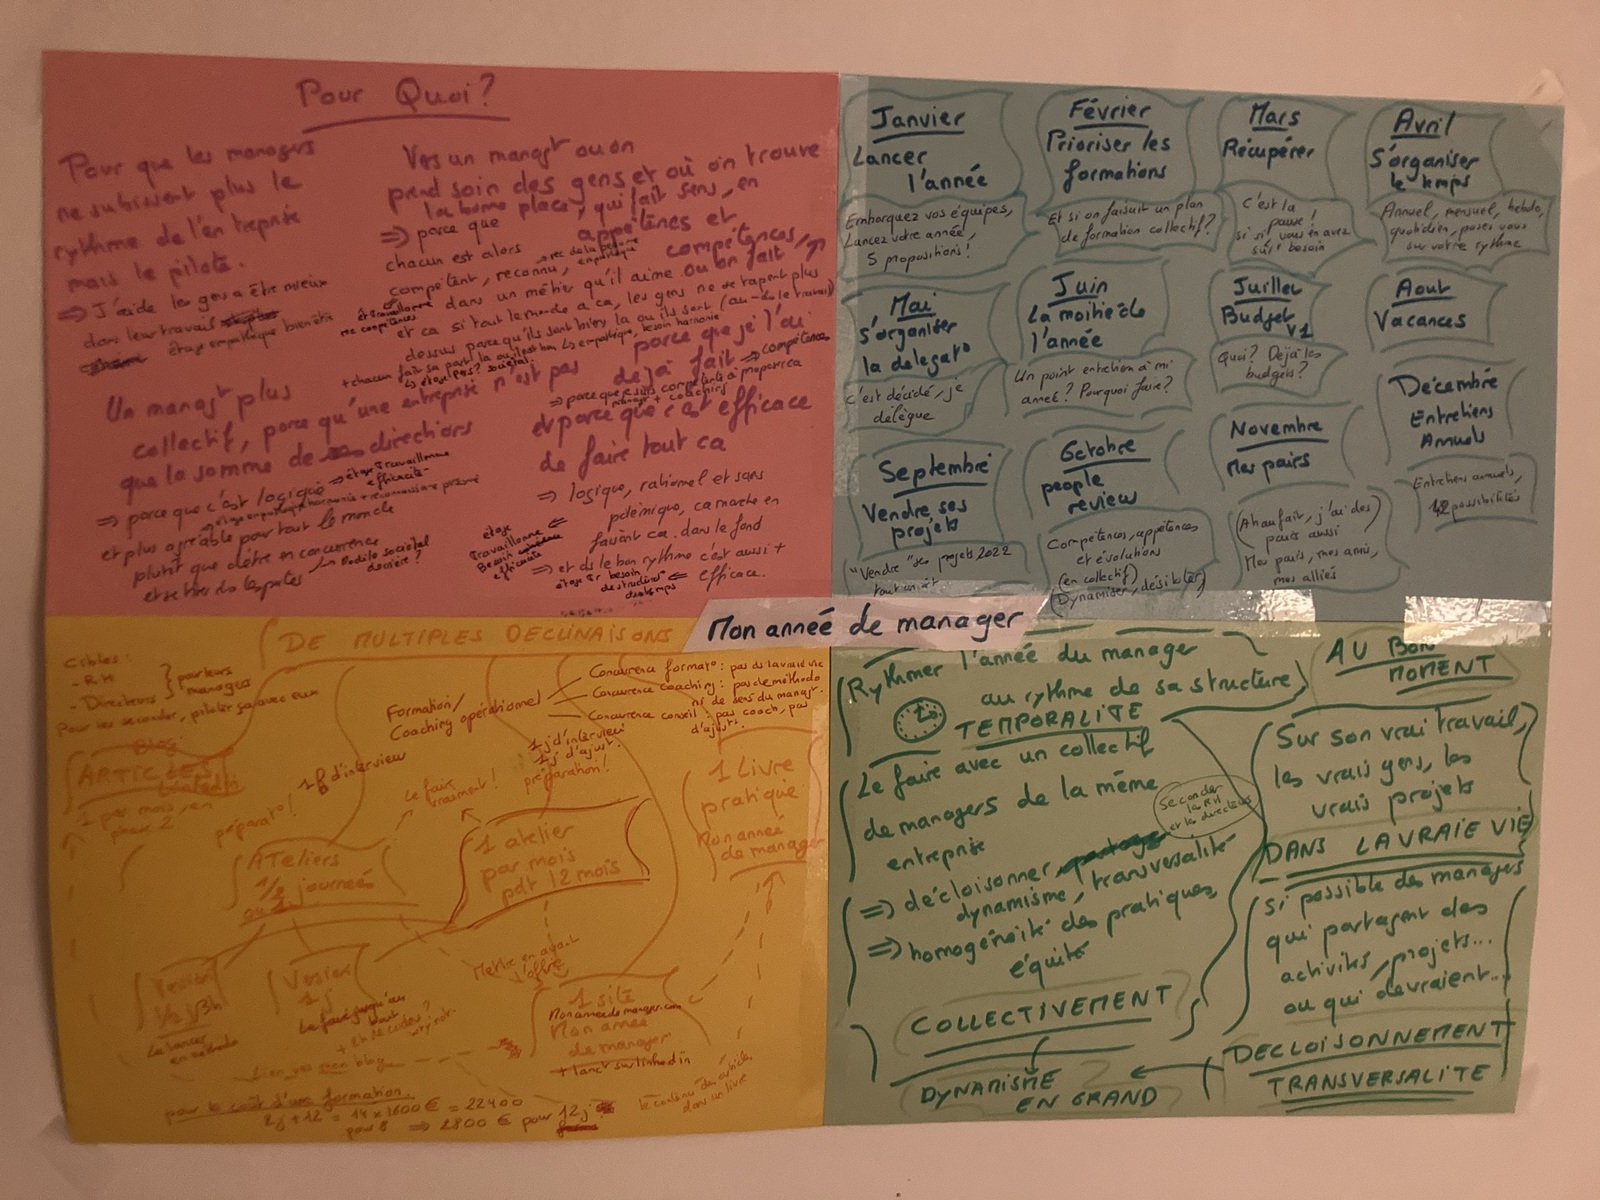 Mon année de manager
Pour Quoi?
Pour que les managers
ne subissent plus le
rythme de l'entreprise
mais le pilote.
=> J'aide les gens à être mieux
dans leur travail
étage empathique bien être
Un manag^t plus
collectif, parce qu'une entreprise n'est pas
que la somme de directions
=> parce que c'est logique
et plus agréable pour tout le monde
plutôt que d'être en concurrence
Vers un manag^t où on
prend soin des gens et où on trouve
la bonne place, qui fait sens, en
appétences et
compétences,
=> parce que
chacun est alors
compétent, reconnu,
dans un métier qu'il aime
et ça si tout le monde a ça, les gens ne se tapent plus
dessus parce qu'ils sont bien, là où ils sont (au - ds le travail)
ou on fait
parce que je l'ai
déjà fait => compétence
=> parce que je suis compétente à proposer ça
manag^t + coaching
et parce que c'est efficace
de faire tout ça
=> logique, rationnel et sans
polémique, ça marche en
faisant ça. dans le fond
=> et ds le bon rythme c'est aussi +
efficace.
étage
Travaillomane
Besoin
efficacité
Janvier
Lancer
l'année
Embarquez vos équipes,
Lancez votre année,
5 propositions!
Février
Prioriser les
formations
Et si on faisait un plan
de formation collectif?
Mars
Récupérer
C'est la
pause!
si si vous en avez
sûr besoin
Avril
S'organiser
le temps
Annuel, mensuel, hebdo,
quotidien, posez vous
sur votre rythme
Mai
S'organiser
la delegat°
c'est décidé, je
délègue
Juin
La moitié de
l'année
Un point entretien à mi
année? Pourquoi faire?
Juillet
Budget
V1
Quoi? Déjà les
budgets?
Aout
Vacances
Septembre
Vendre ses
projets
"Vendre" ses projets 2022
tout un art
Octobre
people
review
Compétences, appétences
et évolutions
(en collectif)
Novembre
Mes pairs
(Ah au fait, j'ai des)
pairs aussi
Mes pairs, mes amis,
mes alliés
Décembre
Entretiens
Annuels
Entretiens annuels,
12 possibilités
DE MULTIPLES DECLINAISONS
Cibles:
- RH
- Directeurs
parleurs
managers
Pour les seconder, piloter ça avec eux
Formation/
Coaching opérationnel
Concurrence format°: pas ds la vraie vie
Concurrence coaching: pas de méthodo
ni de sens du manag^t.
Concurrence conseil: pas coach, pas
d'ajust^t.
Blog
ARTICLES
LinkedIn
1 par mois, en
phase 2
préparat°!
Le faire
vraiment!
1j d'interview
1j d'ajust^t
préparation!
Ateliers
1/2 journées
ou 1 j
1 atelier
par mois
pdt 12 mois
1 Livre
pratique
Mon année
de manager
Version
1/2 j 3h
Version
1 j
Mettre en avant
l'offre
1 site
Monanneedemanager.com
Mon année
de manager
+ lanc^t sur linkedin
Lien vers mon blog
le contenu des articles
dans un livre
pour le coût d'une formation.
2j + 12 = 14 x 1600 € = 22400
pour 8 => 2800 € pour 12j
Rythmer l'année du manager
au rythme de sa structure
TEMPORALITE
AU BON
MOMENT
Le faire avec un collectif
de managers de la même
entreprise
=> décloisonner
dynamisme, transversalité
=> homogénéité des pratiques,
équité
COLLECTIVEMENT
Seconder
la RH
et les directeurs
Sur son vrai travail,
les vrais gens, les
vrais projets
DANS LA VRAIE VIE
Si possible des managers
qui partagent des
activités, projets...
ou qui devraient...
DECLOISONNEMENT
TRANSVERSALITE
DYNAMISME
EN GRAND